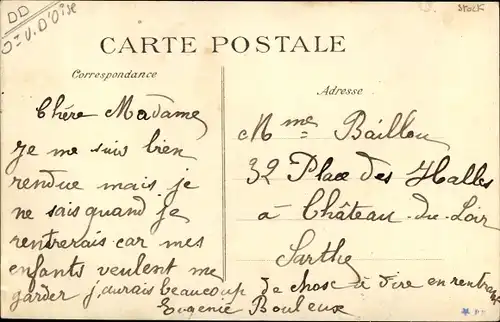 DD
J=V. D'Oise
Stock
CARTE POSTALE
Correspondance
Adresse
Chére Madame
Je me suis bien
rendue mais je
ne sais quand je
rentrerais car mes
enfants veulent me
garder j'aurais beaucoup de chose à dire en rentrant
Eugenie Bouleux
Mme Baillou
32 Place des Halles
à Château-du-Loir
Sarthe